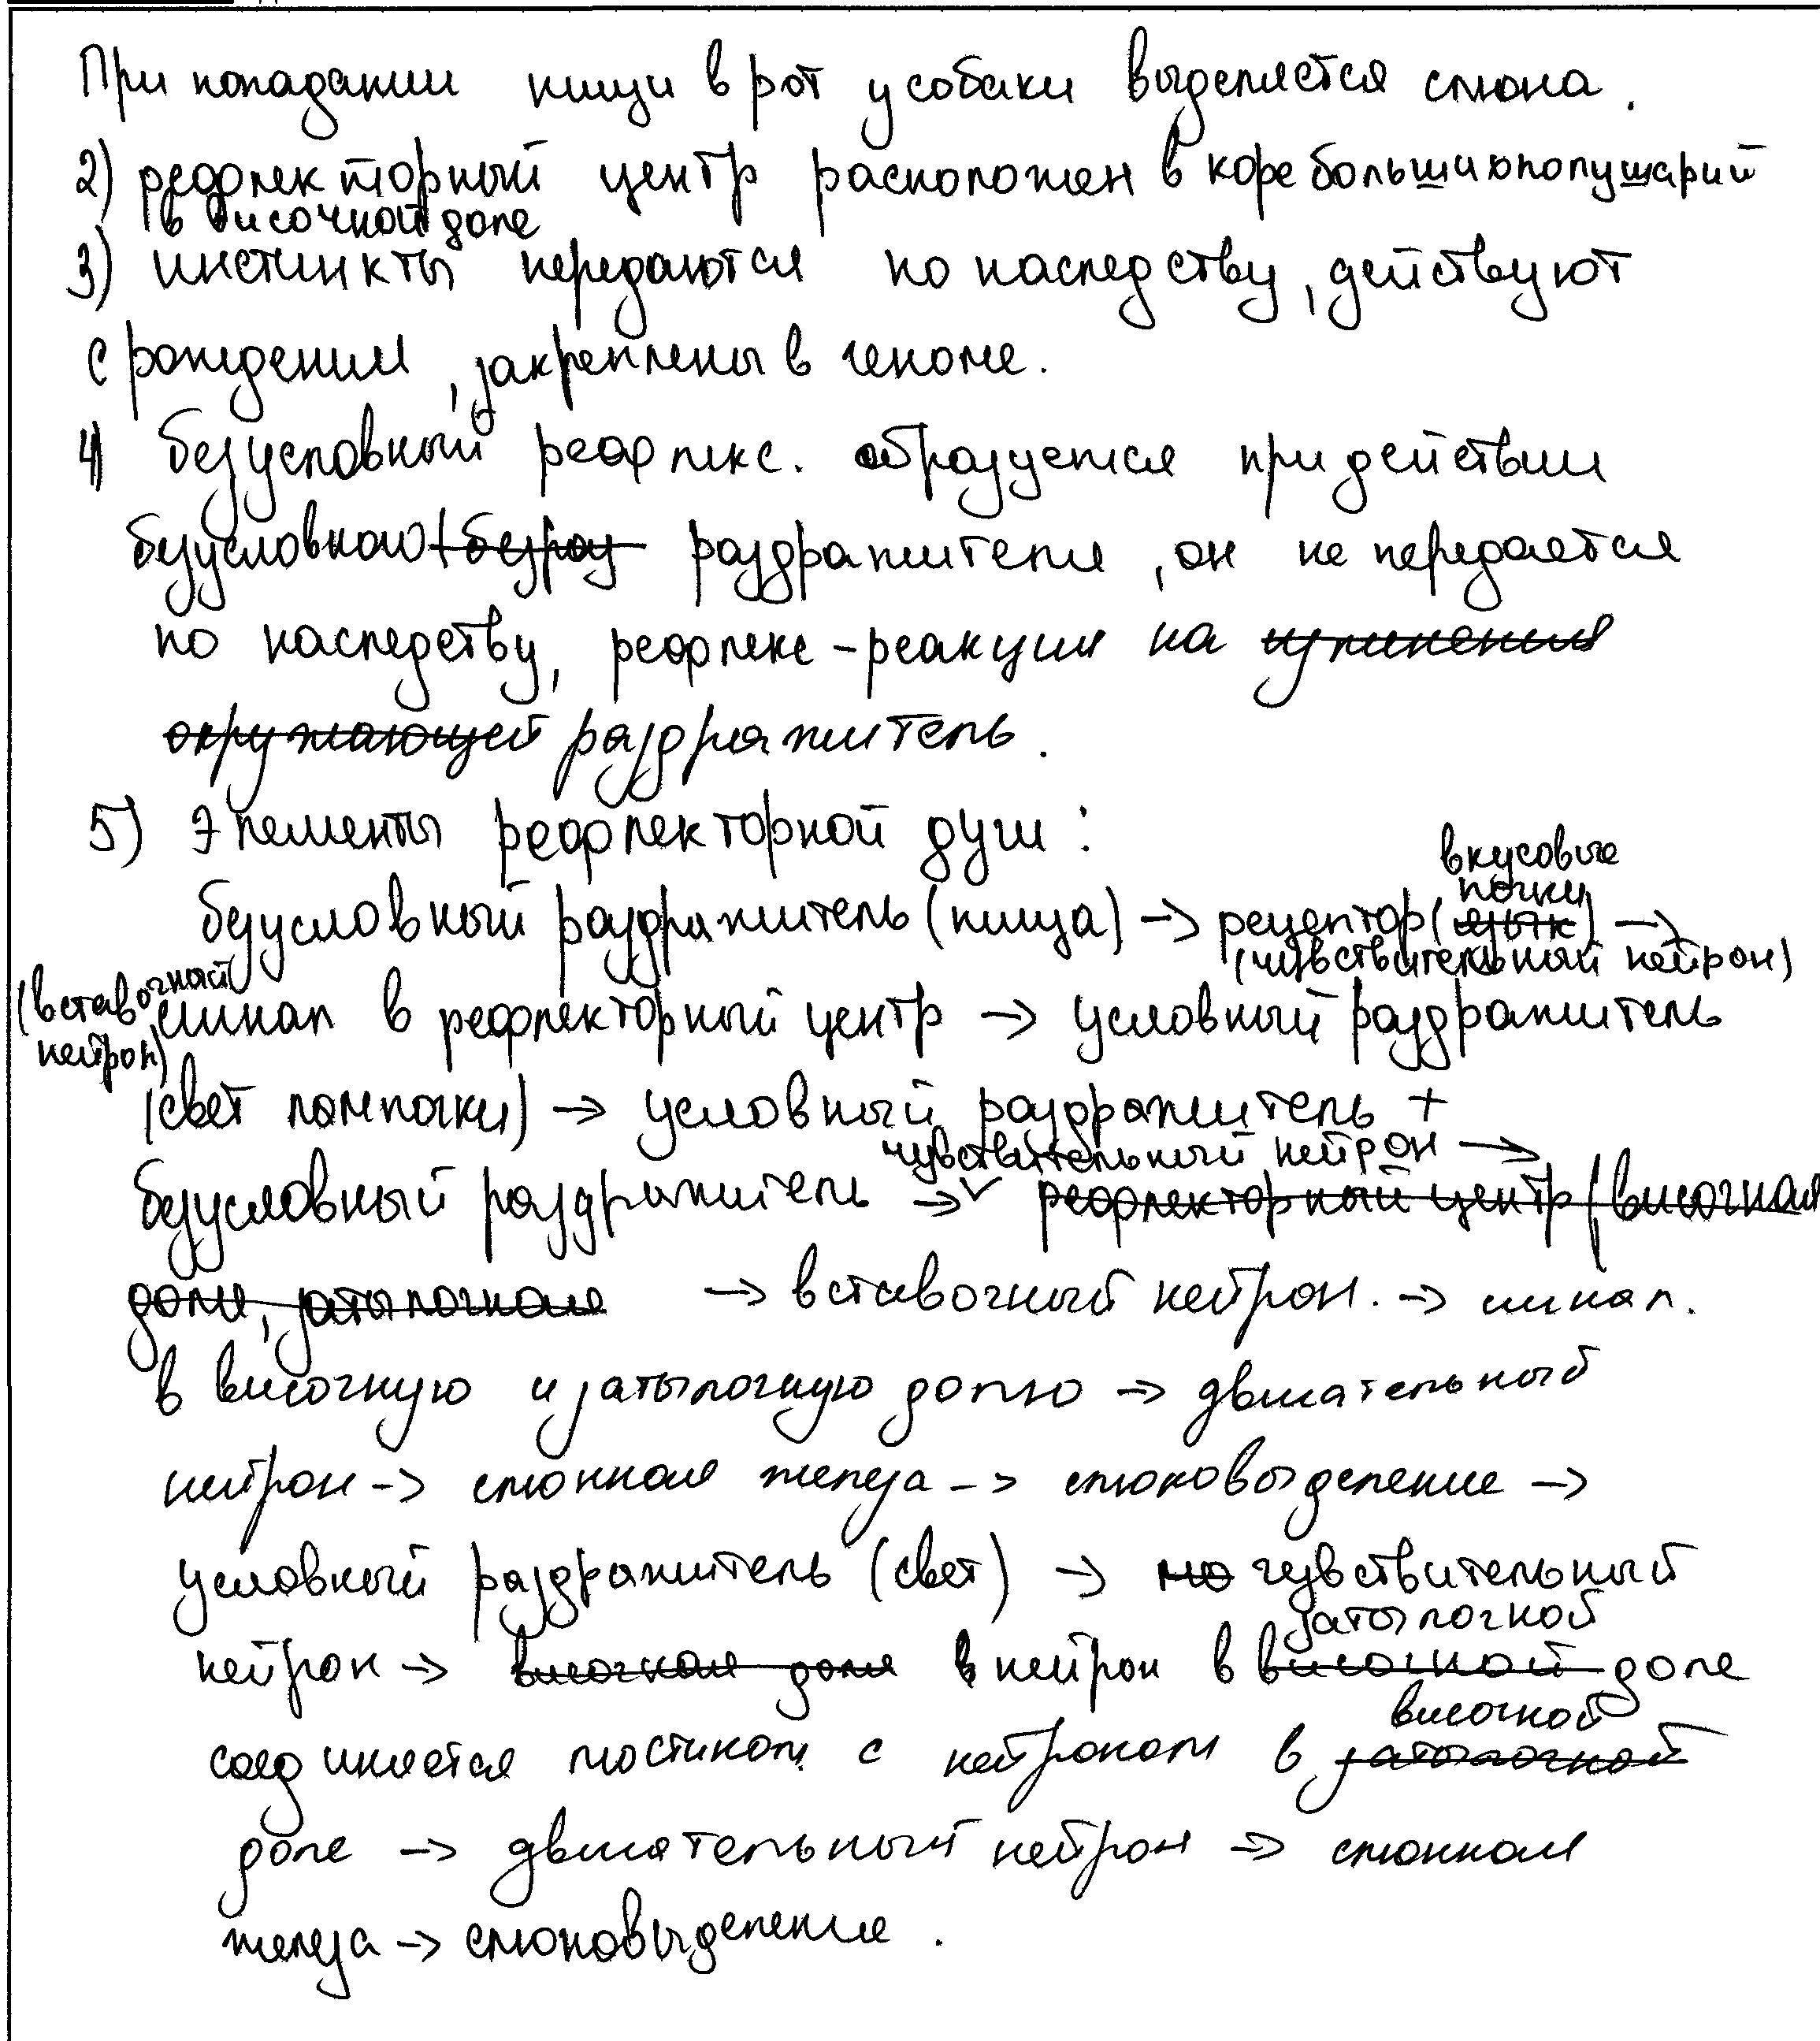 При попадании пищи в рот у собаки выделяется слюна.
2) рефлекторный центр расположен в коре больших полушарий
в височной доле
3) инстинкты передаются по наследству, действуют
с рождения, закреплены в геноме.
4) безусловный рефлекс. образуется при действии
безусловного раздражителя, он не передается
по наследству, рефлекс - реакция на изменения
окружающей раздражитель.
5) Элементы рефлекторной дуги:
вкусовые
почки
безусловный раздражитель (пища) → рецептор (язык) →
(чувствительный нейрон)
(вставочный
нейрон)
сигнал в рефлекторный центр → условный раздражитель
(свет лампочки) → условный раздражитель +
чувствительный нейрон →
безусловный раздражитель → рефлекторный центр (височная
доля, затылочная → вставочный нейрон. → сигнал.
в височную и затылочную долю → двигательный
нейрон → слюнная железа → слюновыделение →
условный раздражитель (свет) → чувствительный
затылочной
нейрон → височная доля в нейрон в височной доле
височной
соединяется мостиком с нейроном в затылочной
доле → двигательный нейрон → слюнная
железа → слюновыделение.